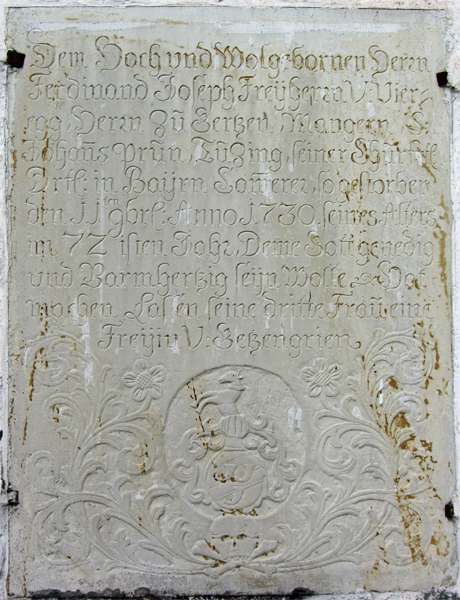 Dem Hoch und Wolgebornen Herrn
Ferdinand Joseph Freÿherrn V: Vier=
egg, Herrn Zu Gertzen, Mangern, S:
Johañs prũn, LũZing, seiner Chũrfrtl:
Drtl: in Baÿrn Cam̃erer, so gestorben
den 11 9brl: Anno 1730. seines Alters
im 72 isten Jahr, Deme Gott genedig
und Barmhertzig seÿn Wolle, Hat
machen Lassen seine dritte Fraũ eine
Freÿin V: Getzengrien